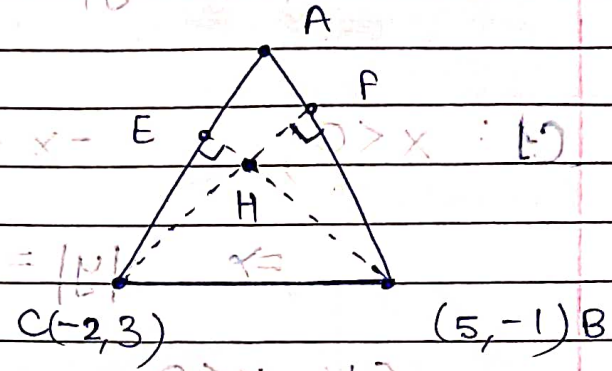 A
F
E
H
C(-2,3) (5,-1) B